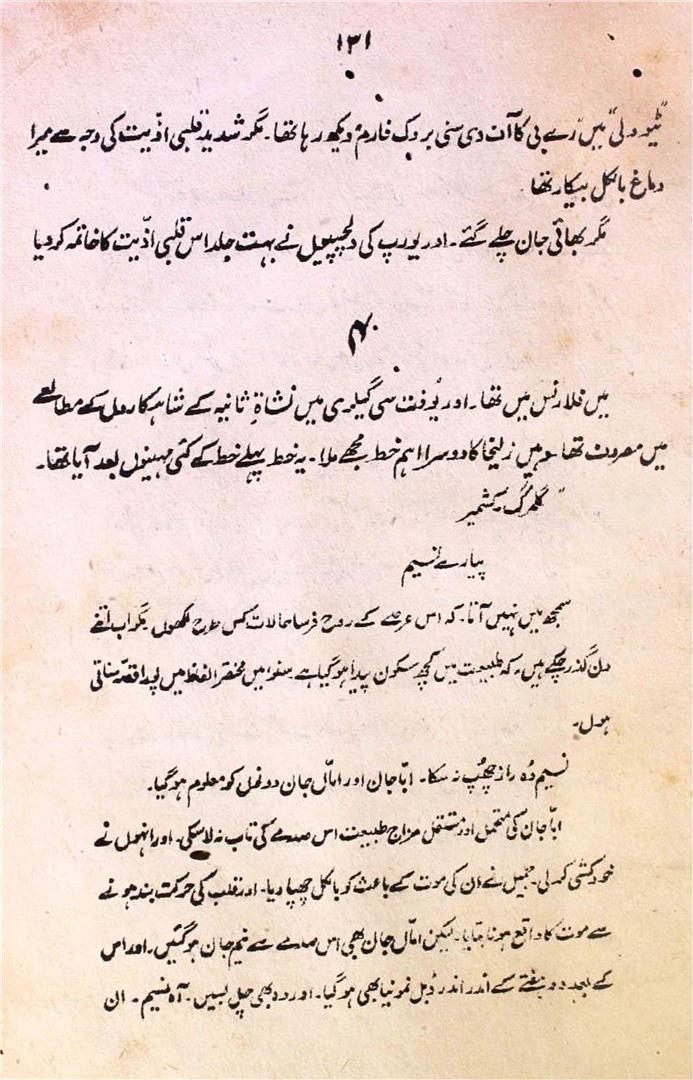 ۱۳۱
"ٹیوولی" میں رے پی کا آن دی سنی بروک فارم دیکھ رہا تھا۔ مگر شدید قلبی اذّیت کی وجہ سے میرا
دماغ بالکل بیکار تھا
مگر بھائی جان چلے گئے۔ اور یورپ کی دلچسپیوں نے بہت جلد اس قلبی اذّیت کا خاتمہ کر دیا
۴
میں فلارنس میں تھا۔ اور یُوفت سی گیلری میں نشاۃِ ثانیہ کے شاہکاروں کے مطالعے
میں مصروف تھا۔ وہیں زلیخا کا دوسرا اہم خط مجھے ملا۔ یہ خط پہلے خط کے کئی مہینوں بعد آیا تھا۔
"گلمرگ۔ کشمیر
پیارے نسیم
سمجھ میں نہیں آتا۔ کہ اس عرصے کے روح فرسا حالات کس طرح لکھوں۔ مگر اب اتنے
دن گذر چکے ہیں۔ کہ طبیعت میں کچھ سکون پیدا ہو گیا ہے سنو، میں مختصر الفاظ میں پورا قصّہ سناتی
ہوں۔
نسیم وُہ راز چھُپ نہ سکا۔ ابّا جان اور امّاں جان دونوں کو معلوم ہو گیا۔
ابّا جان کی متحمل اور مستقل مزاج طبیعت اس صدمے کی تاب نہ لا سکی۔ اور انہوں نے
خود کشی کر لی۔ جمیل نے ان کی موت کے باعث کو بالکل چھپا دیا۔ اور قلب کی حرکت بند ہونے
سے موت کا واقع ہونا بتایا۔ لیکن امّاں جان بھی اس صدمے سے نیم جان ہو گئیں۔ اور اس
کے بعد دو ہفتے کے اندر اندر ڈبل نمونیا بھی ہو گیا۔ اور وہ بھی چل بسیں۔ آہ نسیم۔ ان